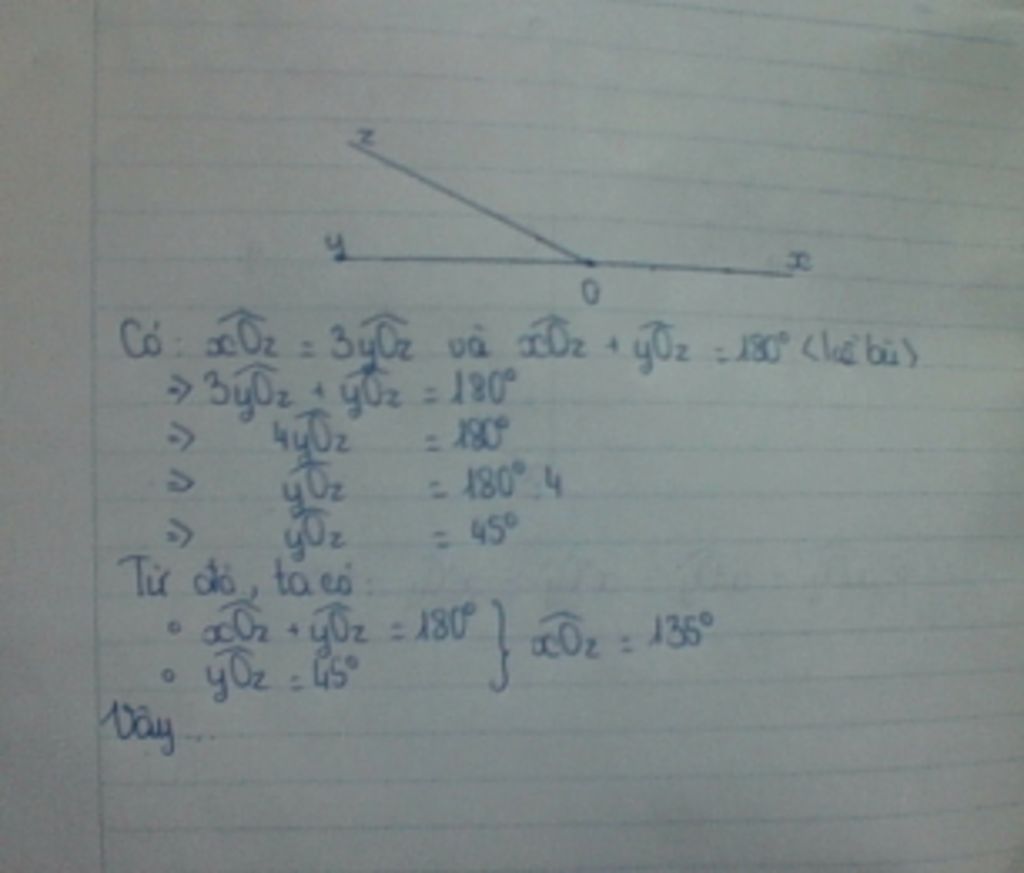 z
y
x
O
Có: x̂Oz = 3ŷOz và x̂Oz + ŷOz = 180° (kề bù)
=> 3ŷOz + ŷOz = 180°
=> 4ŷOz = 180°
=> ŷOz = 180° : 4
=> ŷOz = 45°
Từ đó, ta có:
• x̂Oz + ŷOz = 180° } x̂Oz = 135°
• ŷOz = 45°
Vậy ...